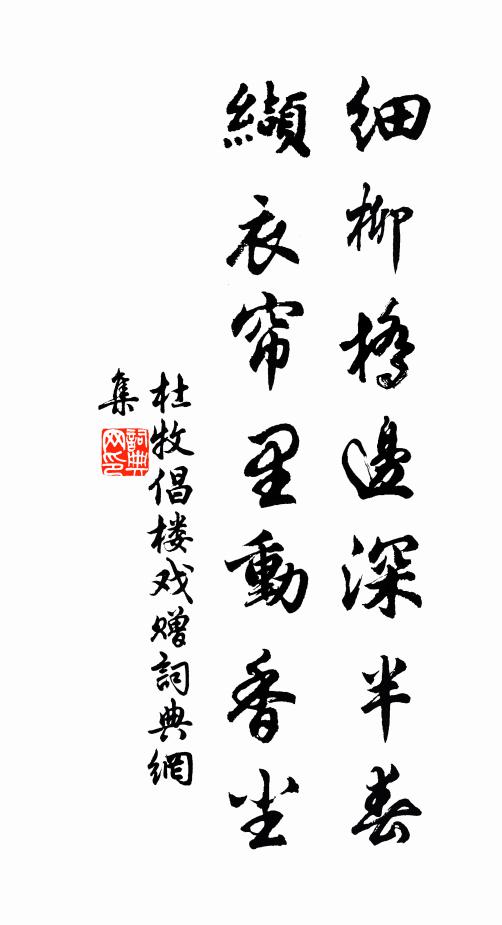 细柳橋邊深半春
纈衣帘里動香尘
杜牧倡楼戏赠詞典網
集
詞典网印